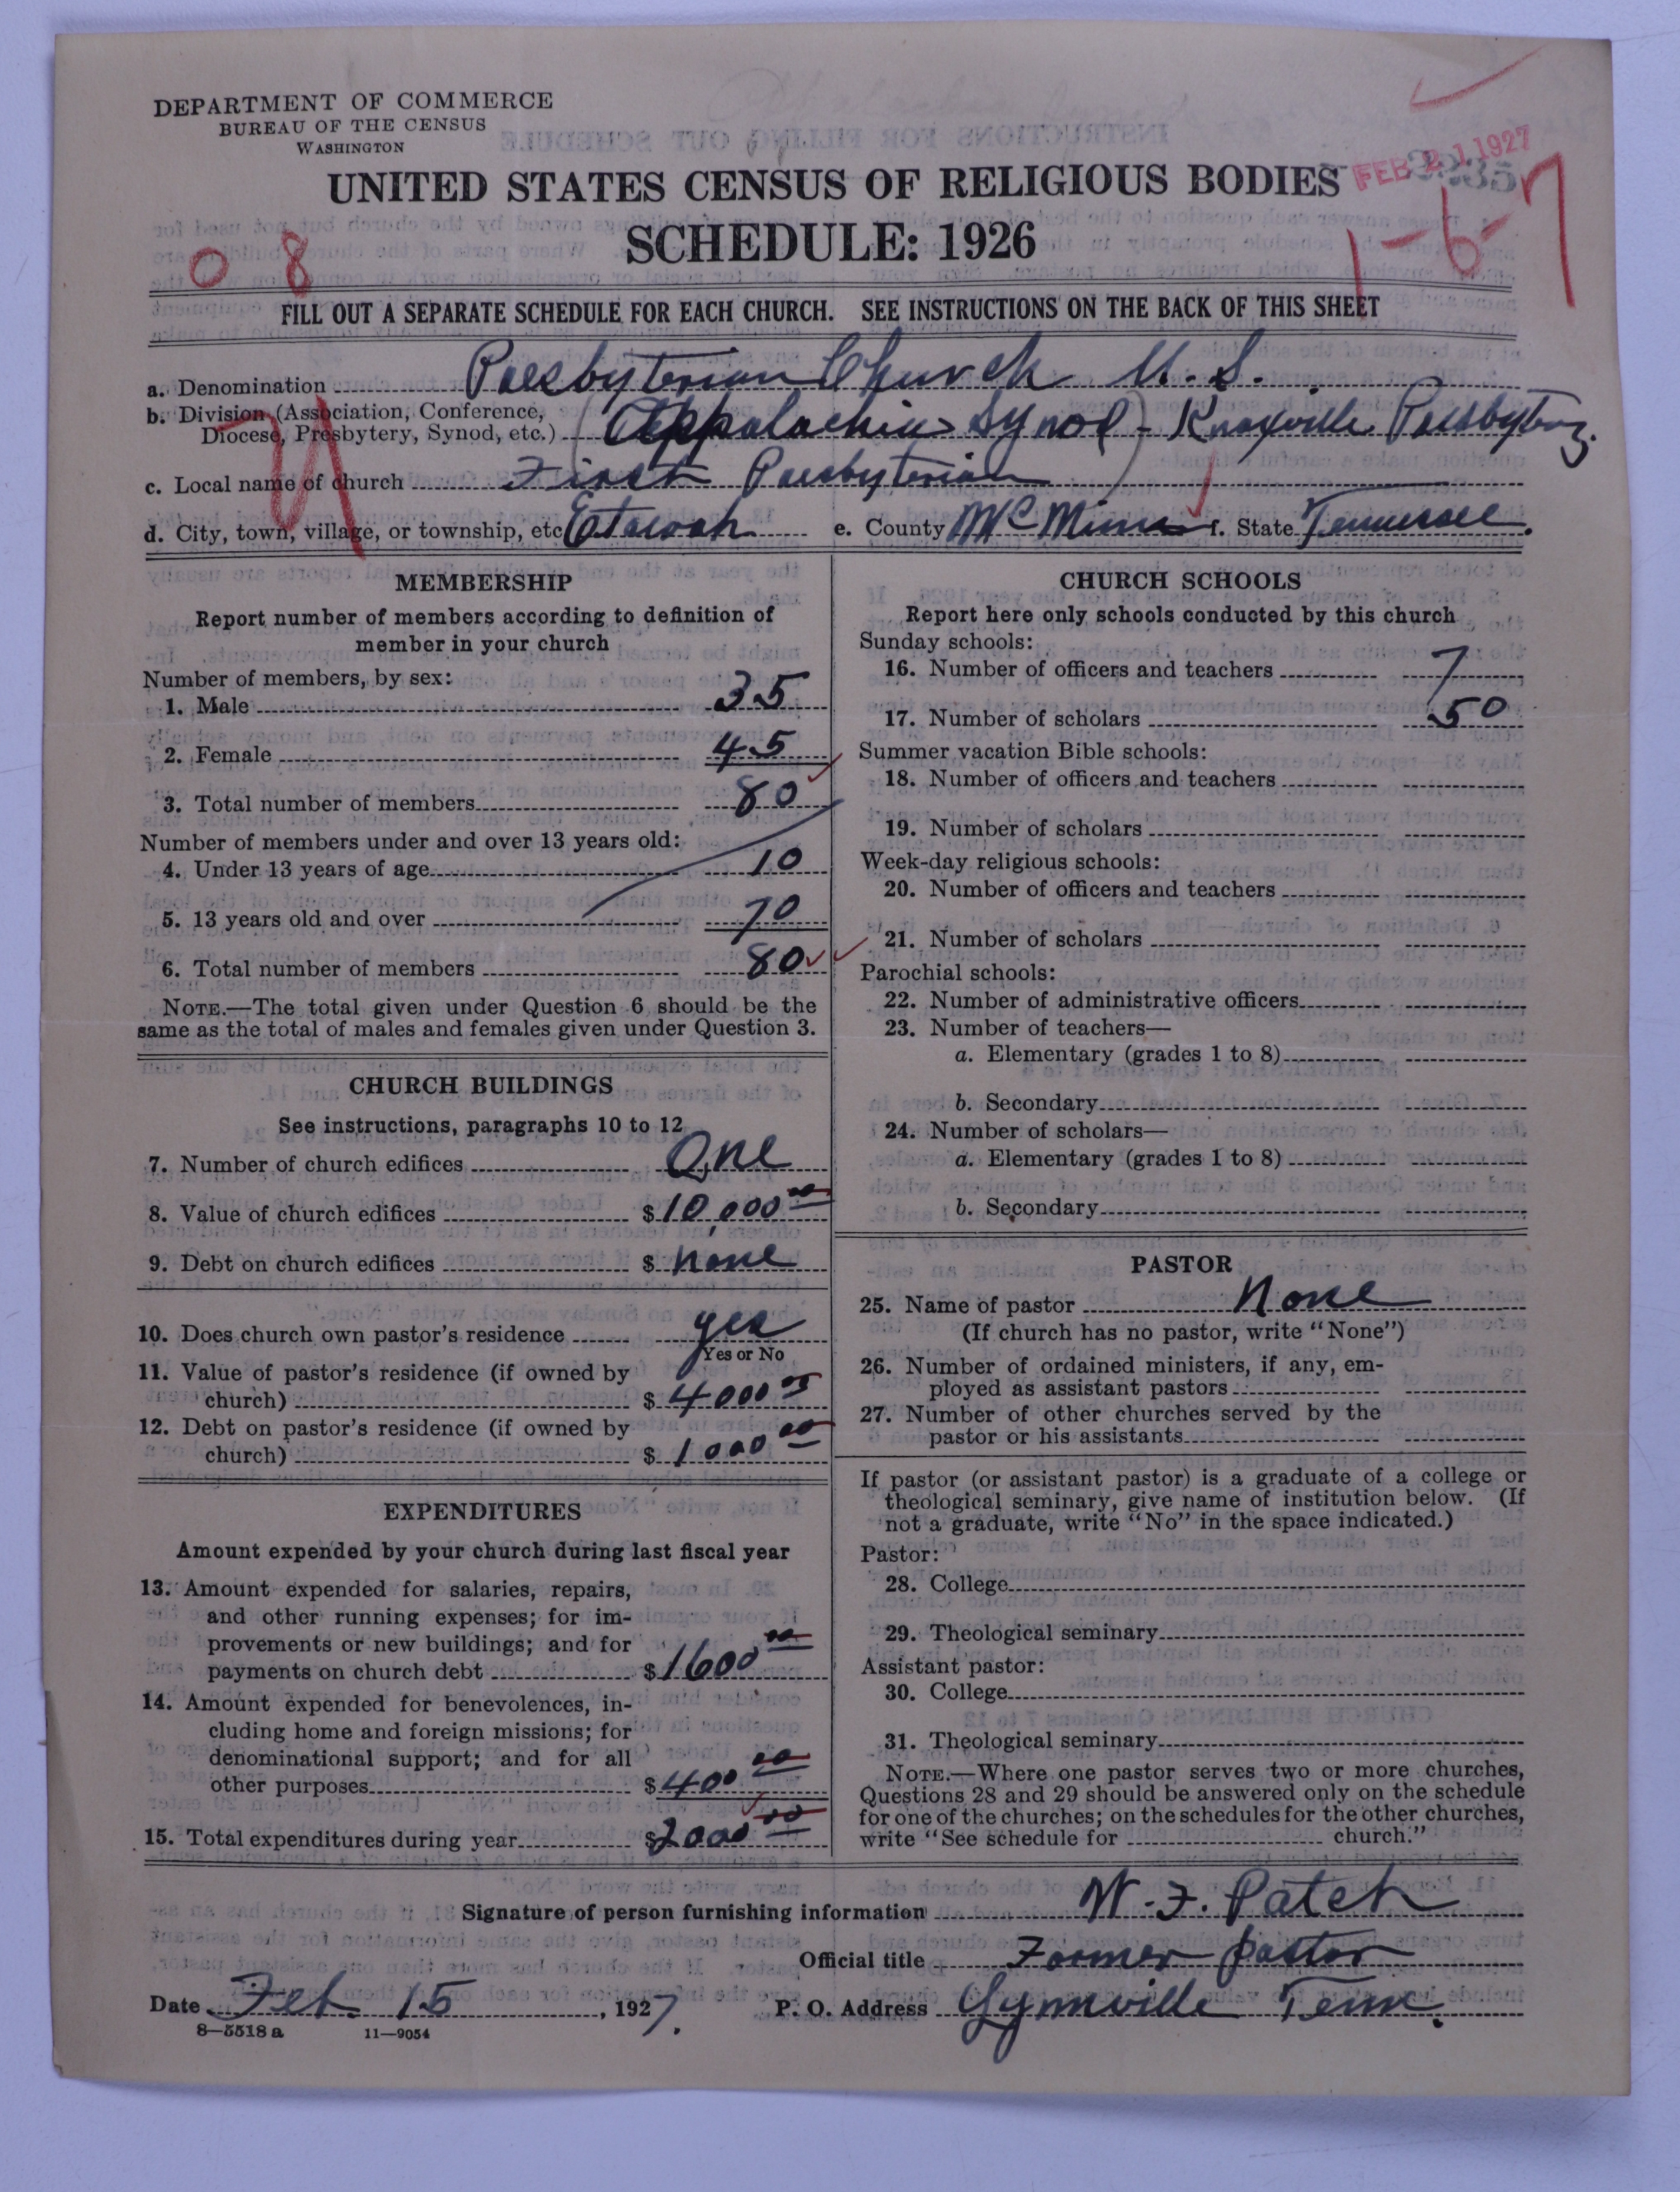 DEPARTMENT OF COMMERCE
BUREAU OF THE CENSUS
WASHINGTON
UNITED STATES CENSUS OF RELIGIOUS BODIES
FEB 21 1927
SCHEDULE: 1926
0 8
1-6-7
FILL OUT A SEPARATE SCHEDULE FOR EACH CHURCH. SEE INSTRUCTIONS ON THE BACK OF THIS SHEET
a. Denomination Presbyterian Church U. S.
b. Division (Association, Conference,
Diocese, Presbytery, Synod, etc.) (Appalachia Synod - Knoxville Presbytery.
c. Local name of church First Presbyterian)
d. City, town, village, or township, etc Etowah e. County McMinn f. State Tennessee.
MEMBERSHIP
Report number of members according to definition of
member in your church
Number of members, by sex:
1. Male 35
2. Female 45
3. Total number of members 80
Number of members under and over 13 years old:
4. Under 13 years of age 10
5. 13 years old and over 70
6. Total number of members 80
NOTE.—The total given under Question 6 should be the
same as the total of males and females given under Question 3.
CHURCH BUILDINGS
See instructions, paragraphs 10 to 12
7. Number of church edifices One
8. Value of church edifices $10,000 00
9. Debt on church edifices $ None
10. Does church own pastor's residence yes
Yes or No
11. Value of pastor's residence (if owned by
church) $4000 00
12. Debt on pastor's residence (if owned by
church) $1000 00
EXPENDITURES
Amount expended by your church during last fiscal year
13. Amount expended for salaries, repairs,
and other running expenses; for im-
provements or new buildings; and for
payments on church debt $1600 00
14. Amount expended for benevolences, in-
cluding home and foreign missions; for
denominational support; and for all
other purposes $400 00
15. Total expenditures during year $2000 00
CHURCH SCHOOLS
Report here only schools conducted by this church
Sunday schools:
16. Number of officers and teachers 7
17. Number of scholars 50
Summer vacation Bible schools:
18. Number of officers and teachers
19. Number of scholars
Week-day religious schools:
20. Number of officers and teachers
21. Number of scholars
Parochial schools:
22. Number of administrative officers
23. Number of teachers—
a. Elementary (grades 1 to 8)
b. Secondary
24. Number of scholars—
a. Elementary (grades 1 to 8)
b. Secondary
PASTOR
25. Name of pastor None
(If church has no pastor, write "None")
26. Number of ordained ministers, if any, em-
ployed as assistant pastors
27. Number of other churches served by the
pastor or his assistants
If pastor (or assistant pastor) is a graduate of a college or
theological seminary, give name of institution below. (If
not a graduate, write "No" in the space indicated.)
Pastor:
28. College
29. Theological seminary
Assistant pastor:
30. College
31. Theological seminary
NOTE.—Where one pastor serves two or more churches,
Questions 28 and 29 should be answered only on the schedule
for one of the churches; on the schedules for the other churches,
write "See schedule for church."
Signature of person furnishing information W. F. Patch
Official title Former pastor
Date Feb. 15, 1927. P. O. Address Lynnville Tenn.
8—5518 a 11—9054